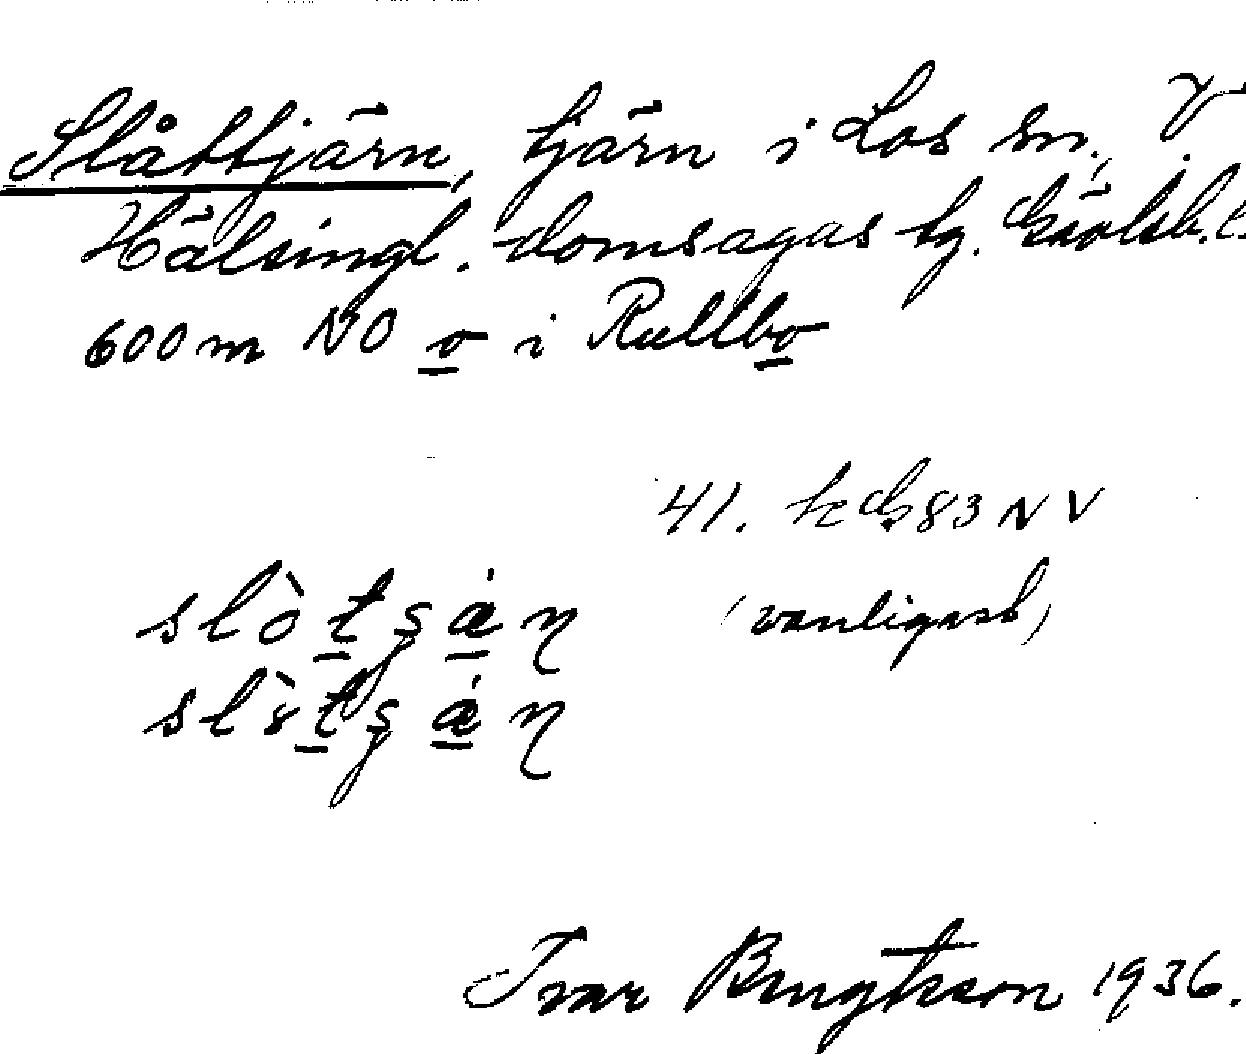 Slåttjärn, tjärn i Los sn, V.
Hälsingl. domsagas tg. Gävleb. l.
600 m NO o i Rullbo
41. k G83 NV
slòtşá̱ɳ (vanligast)
sl tşá̱ɳ
Ivar Bengtsson 1936.